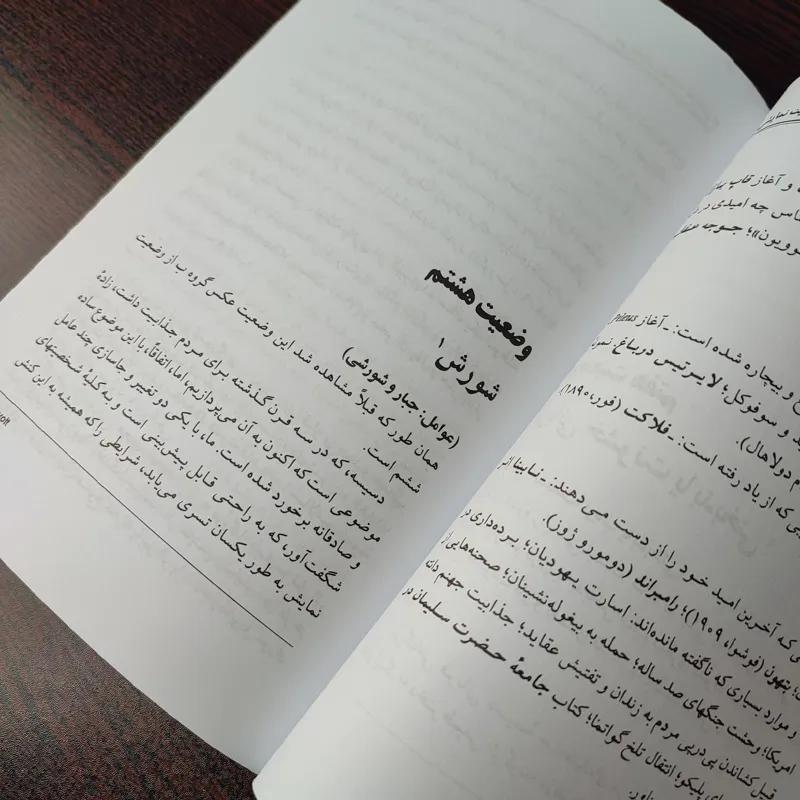 و آغاز قاب
چه امیدی در
جوجه
و بیچاره شده است: ـ آغاز Peleus
و سوفوکل؛ لایرتیس در باغ.
دولاهال).
که از یاد رفته است: ـ فلاکت (فور، ۱۸۹۰).
که آخرین امید خود را از دست می‌دهند: ـ نابینا اثر
بتهون (فوشوا، ۱۹۰۹)؛ رامبراند (دومور و ژوز).
و موارد بسیاری که ناگفته مانده‌اند: اسارت یهودیان؛ برده‌داری در
امریکا؛ وحشت جنگهای صد ساله؛ حمله به بیغوله‌نشینان؛ صحنه‌هایی از
قبل کشاندن پی در پی مردم به زندان و تفتیش عقاید؛ جذابیت جهنم
پلیکو؛ انتقال تلخ گواتما؛ کتاب جامعهٔ حضرت سلیمان در
وضعیت هشتم
شورش۱
(عوامل: جبار و شورشی)
همان طور که قبلاً مشاهده شد این وضعیت عکس گروه ب از وضعیت
ششم است.
دسیسه، که در سه قرن گذشته برای مردم جذابیت داشت، زادهٔ
موضوعی است که اکنون به آن می‌پردازیم، اما، اتفاقاً، با این موضوع ساده
و صادقانه برخورد شده است. ما، با یکی دو تغییر و جاسازی چند عامل
شگفت‌آور، که به راحتی قابل پیش‌بینی است و به کلیهٔ شخصیتهای
نمایش به طور یکسان تسری می‌یابد، شرایطی را که همیشه به این کنش